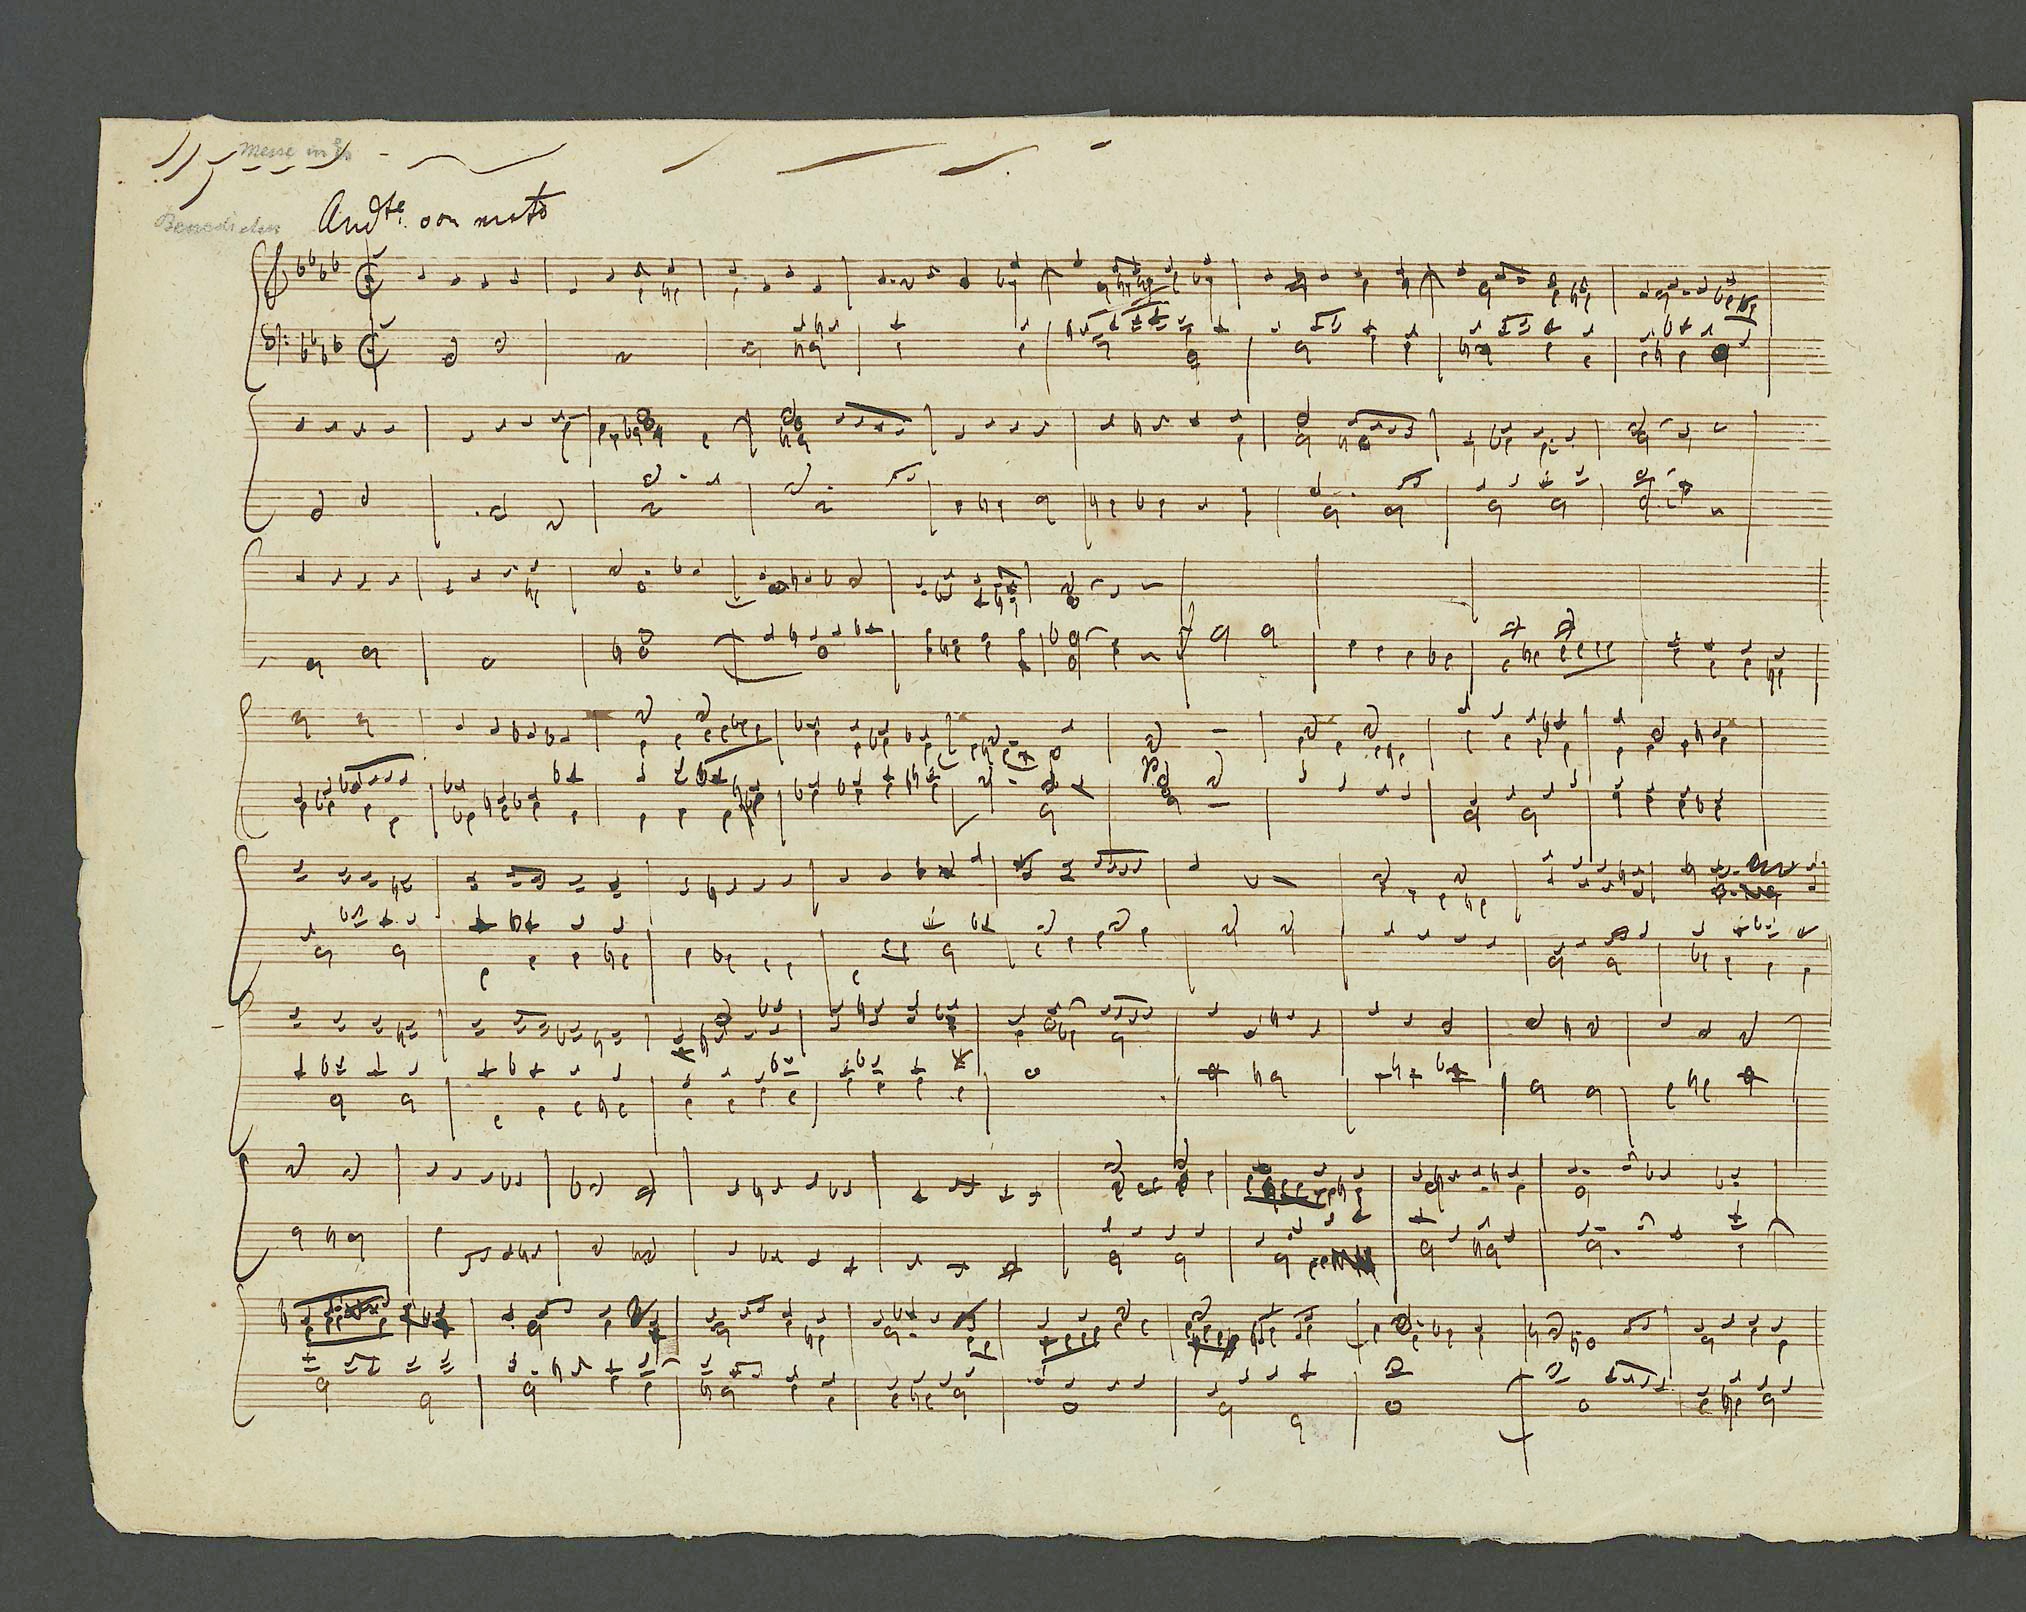 Messe in Es
Benedictus Andte con moto